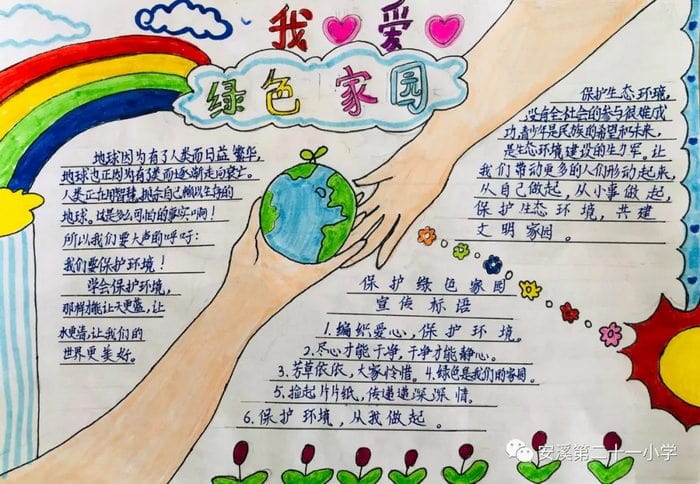 我爱
绿色家园
地球因为有了人类而日益繁华,
地球也正因为有了人类而逐渐走向衰亡。
人类正在用智慧,挑会自己赖以生存的
地球。这是多么可怕的事实啊!
所以我们要大声的呼吁:
我们要保护环境!
学会保护环境,
那样才能让天更蓝,让
水更清,让我们的
世界更美好。
保护生态环境,
没有全社会的参与很难成
功,青少年是民族的希望和未来,
是生态环境建设的生力军。让
我们带动更多的人们形动起来
从自己做起,从小事做起,
保护生态环境,共建
文明家园。
保护绿色家园
宣传标语
1.编织爱心,保护环境。
2.尽心才能干净,干净才能静心。
3.芳草依依,大家怜惜。4.绿色是我们的家园。
5.捡起片片纸,传递递深深情。
6.保护环境,从我做起。
安溪第二十一小学